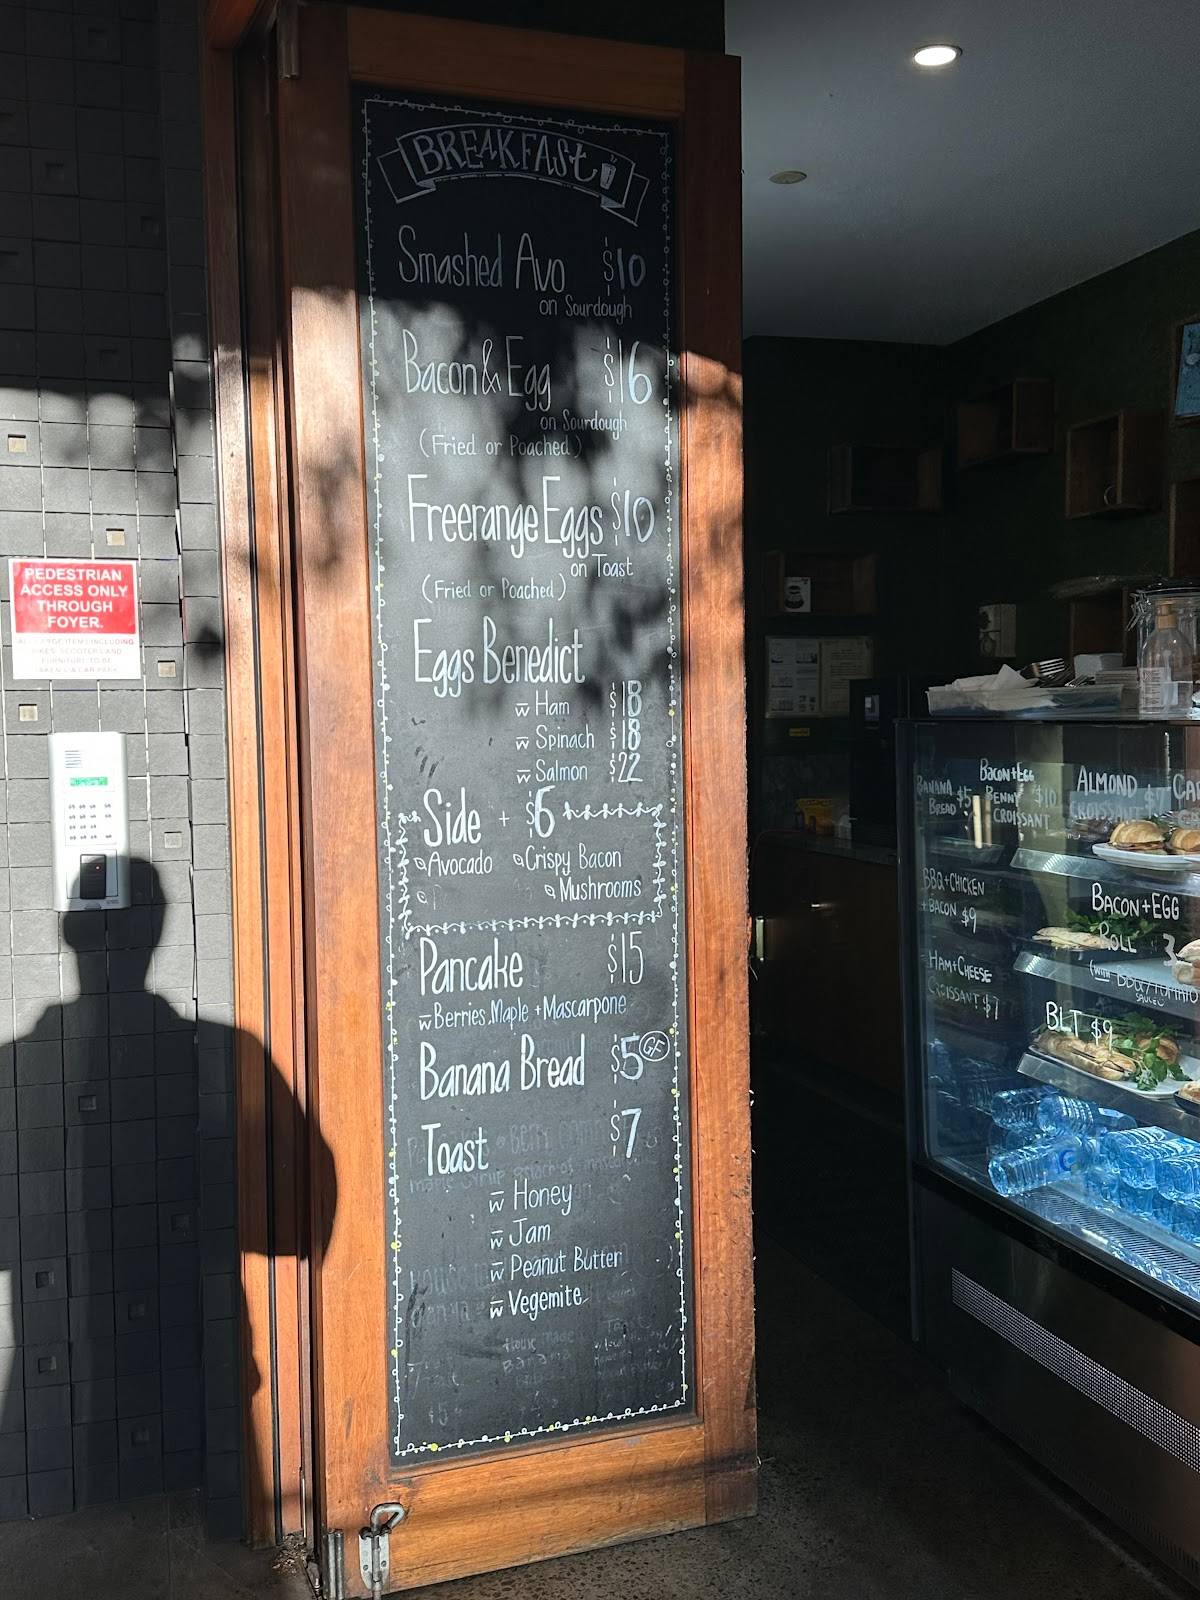 BREAKFASt
Smashed Avo $10
on Sourdough
Bacon & Egg $16
on Sourdough
(Fried or Poached)
Freerange Eggs $10
on Toast
(Fried or Poached)
Eggs Benedict
w Ham $18
w Spinach $18
w Salmon $22
Side + $6
Avocado Crispy Bacon
Mushrooms
Pancake $15
w Berries, Maple + Mascarpone
Banana Bread $5 GF
Toast $7
w Honey
w Jam
w Peanut Butter
w Vegemite
PEDESTRIAN
ACCESS ONLY
THROUGH
FOYER.
BANANA
BREAD $5
BACON+EGG
BENNY $10
CROISSANT
ALMOND
CROISSANT $7
BBQ+CHICKEN
+BACON $9
HAM+CHEESE
CROISSANT $7
BACON+EGG
ROLL
(with BBQ/TOMATO
SAUCE
BLT $9